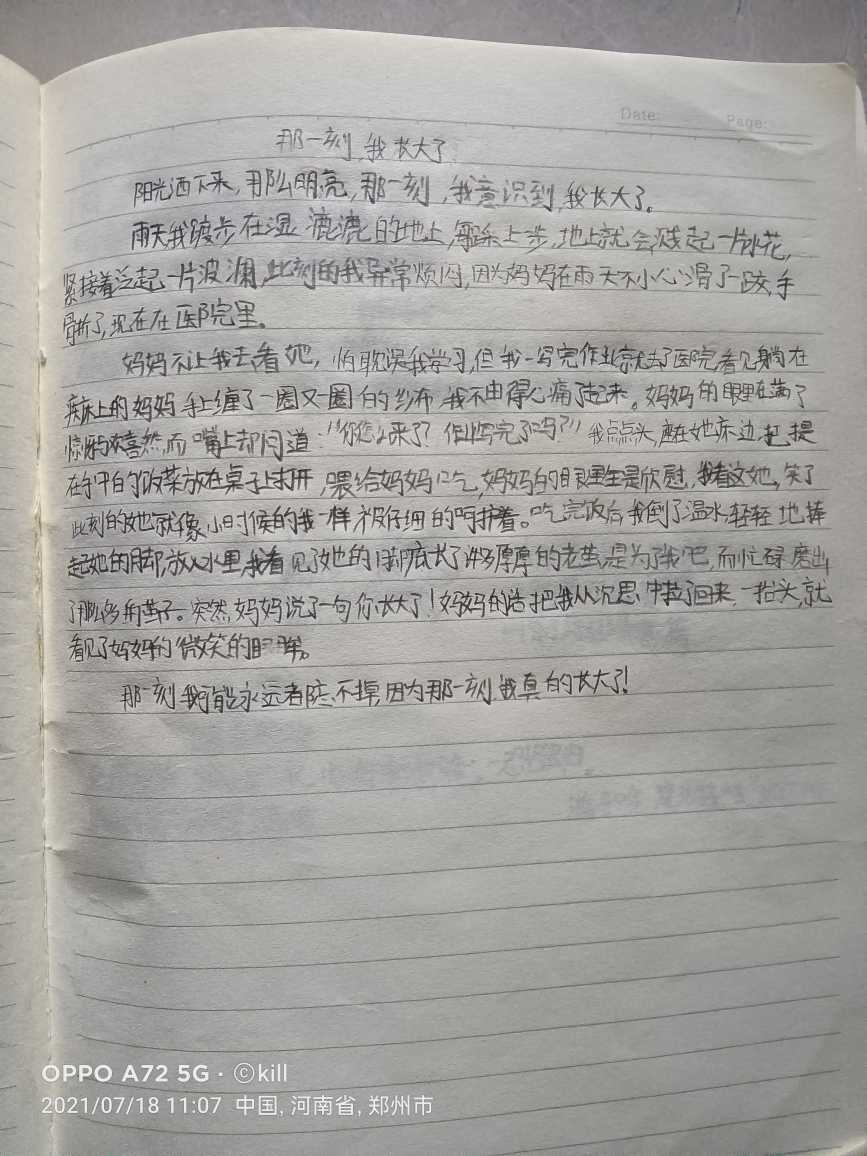 Date: Page:
那一刻,我长大了
阳光洒下来,那么明亮,那一刻,我意识到,我长大了。
雨天我踱步在湿漉漉的地上,每踩上一步,地上就会溅起一片水花,
紧接着泛起一片波澜,此刻的我异常烦闷,因为妈妈在雨天不小心滑了一跤,手
骨折了,现在在医院里。
妈妈不让我去看她,怕耽误我学习,但我一写完作业就去了医院看见躺在
病床上的妈妈手上缠了一圈又一圈白的纱布我不由得心痛了起来。妈妈的眼里在满了
惊讶与欢喜然而嘴上却问道:“你怎么来了?作业写完了吗?”我点点头,座在她床边,把提
在手中的饭菜放在桌子上打开,喂给妈妈吃,妈妈的眼里全是欣慰,我看这她,笑了
此刻的她就像小时候的我一样被仔细的呵护着。吃完饭后我倒了温水,轻轻地捧
起她的脚,放入水里,我看见了她的脚底长了许多厚厚的老茧,是为了我吧,而忙碌磨出
了那么多茧子。突然,妈妈说了一句你长大了!妈妈的话把我从沉思中拉了回来,一抬头,就
看见了妈妈的微笑的眼眸。
那一刻我可能永远都忘不掉,因为那一刻,我真的长大了!
OPPO A72 5G · ©kill
2021/07/18 11:07 中国, 河南省, 郑州市